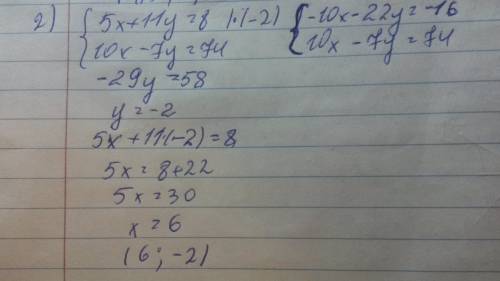 2) { 5x+11y=8 |·(-2) { -10x-22y=-16
10x-7y=74 10x-7y=74
-29y=58
y=-2
5x+11(-2)=8
5x=8+22
5x=30
x=6
(6;-2)